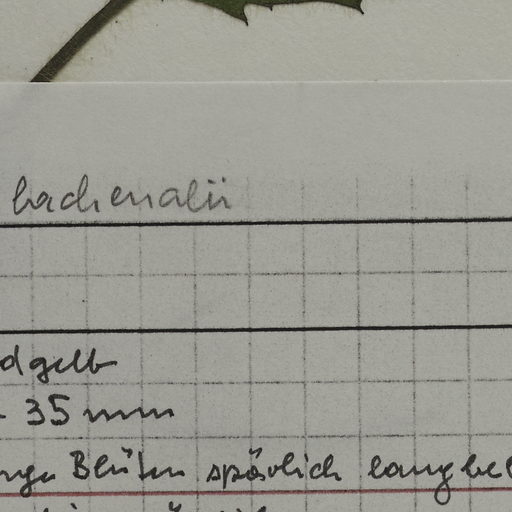 lachenalii
dgelb
- 35 mm
nge Blüten spärlich langbe